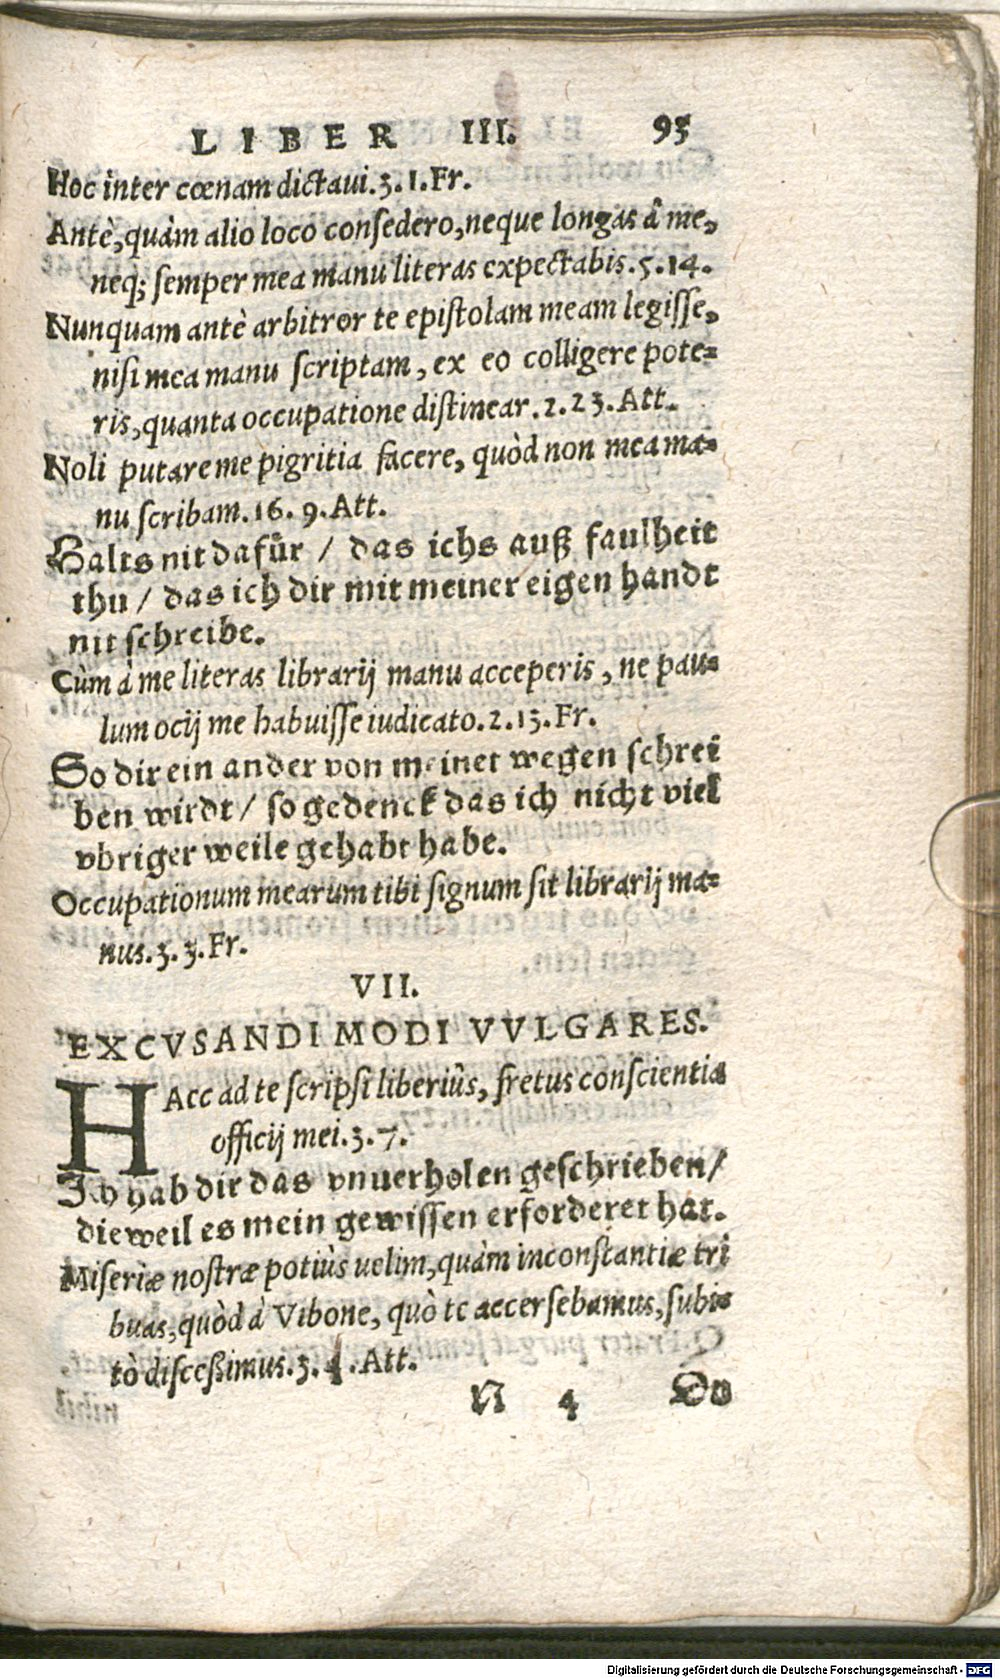 LIBER III. 95
Hoc inter cœnam dictaui.3.1.Fr.
Antè,quàm alio loco consedero,neque longas â me,
neq; semper mea manu literas expectabis.5.14.
Nunquam antè arbitror te epistolam meam legisse,
nisi mea manu scriptam, ex eo colligere pote-
ris,quanta occupatione distinear.2.23.Att.
Noli putare me pigritia facere, quòd non mea ma-
nu scribam.16.9.Att.
Halts nit dafür / das ichs auß faulheit
thu / das ich dir mit meiner eigen handt
nit schreibe.
Cùm à me literas librarij manu acceperis, ne pau-
lum ocij me habuisse iudicato.2.13.Fr.
So dir ein ander von meinet wegen schrei
ben wirdt / so gedenck das ich nicht viel
vbriger weile gehabt habe.
Occupationum mearum tibi signum sit librarij ma-
nus.3.3.Fr.
VII.
EXCVSANDI MODI VVLGARES.
HAec ad te scripsi liberiûs, fretus conscientia
officij mei.3.7.
Ich hab dir das vnuerholen geschrieben /
dieweil es mein gewissen erforderet hat.
Miseriæ nostræ potiùs uelim,quàm inconstantiæ tri
buas,quòd à Vibone, quò te accersebamus,subi-
tò discessimus.3.4.Att.
N 4 Du
Digitalisierung gefördert durch die Deutsche Forschungsgemeinschaft - DFG